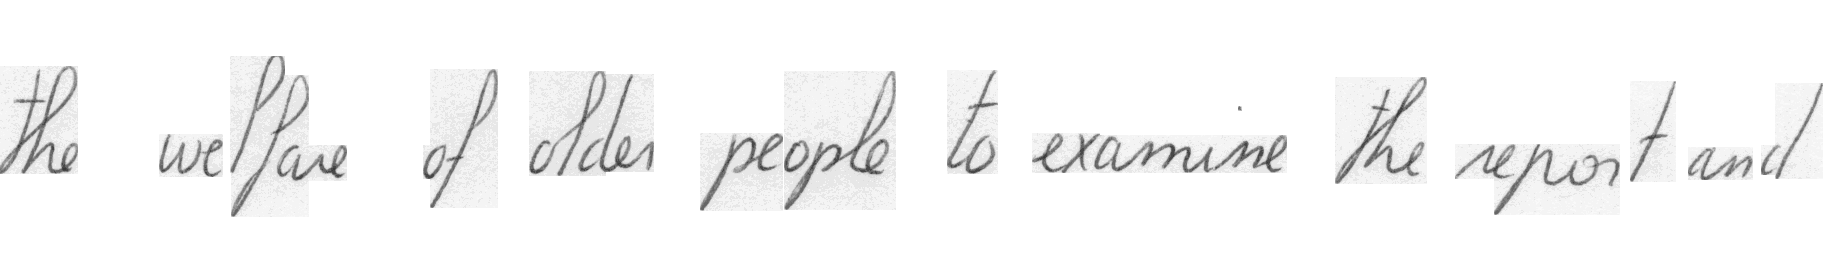 the welfare of older people to examine the report and